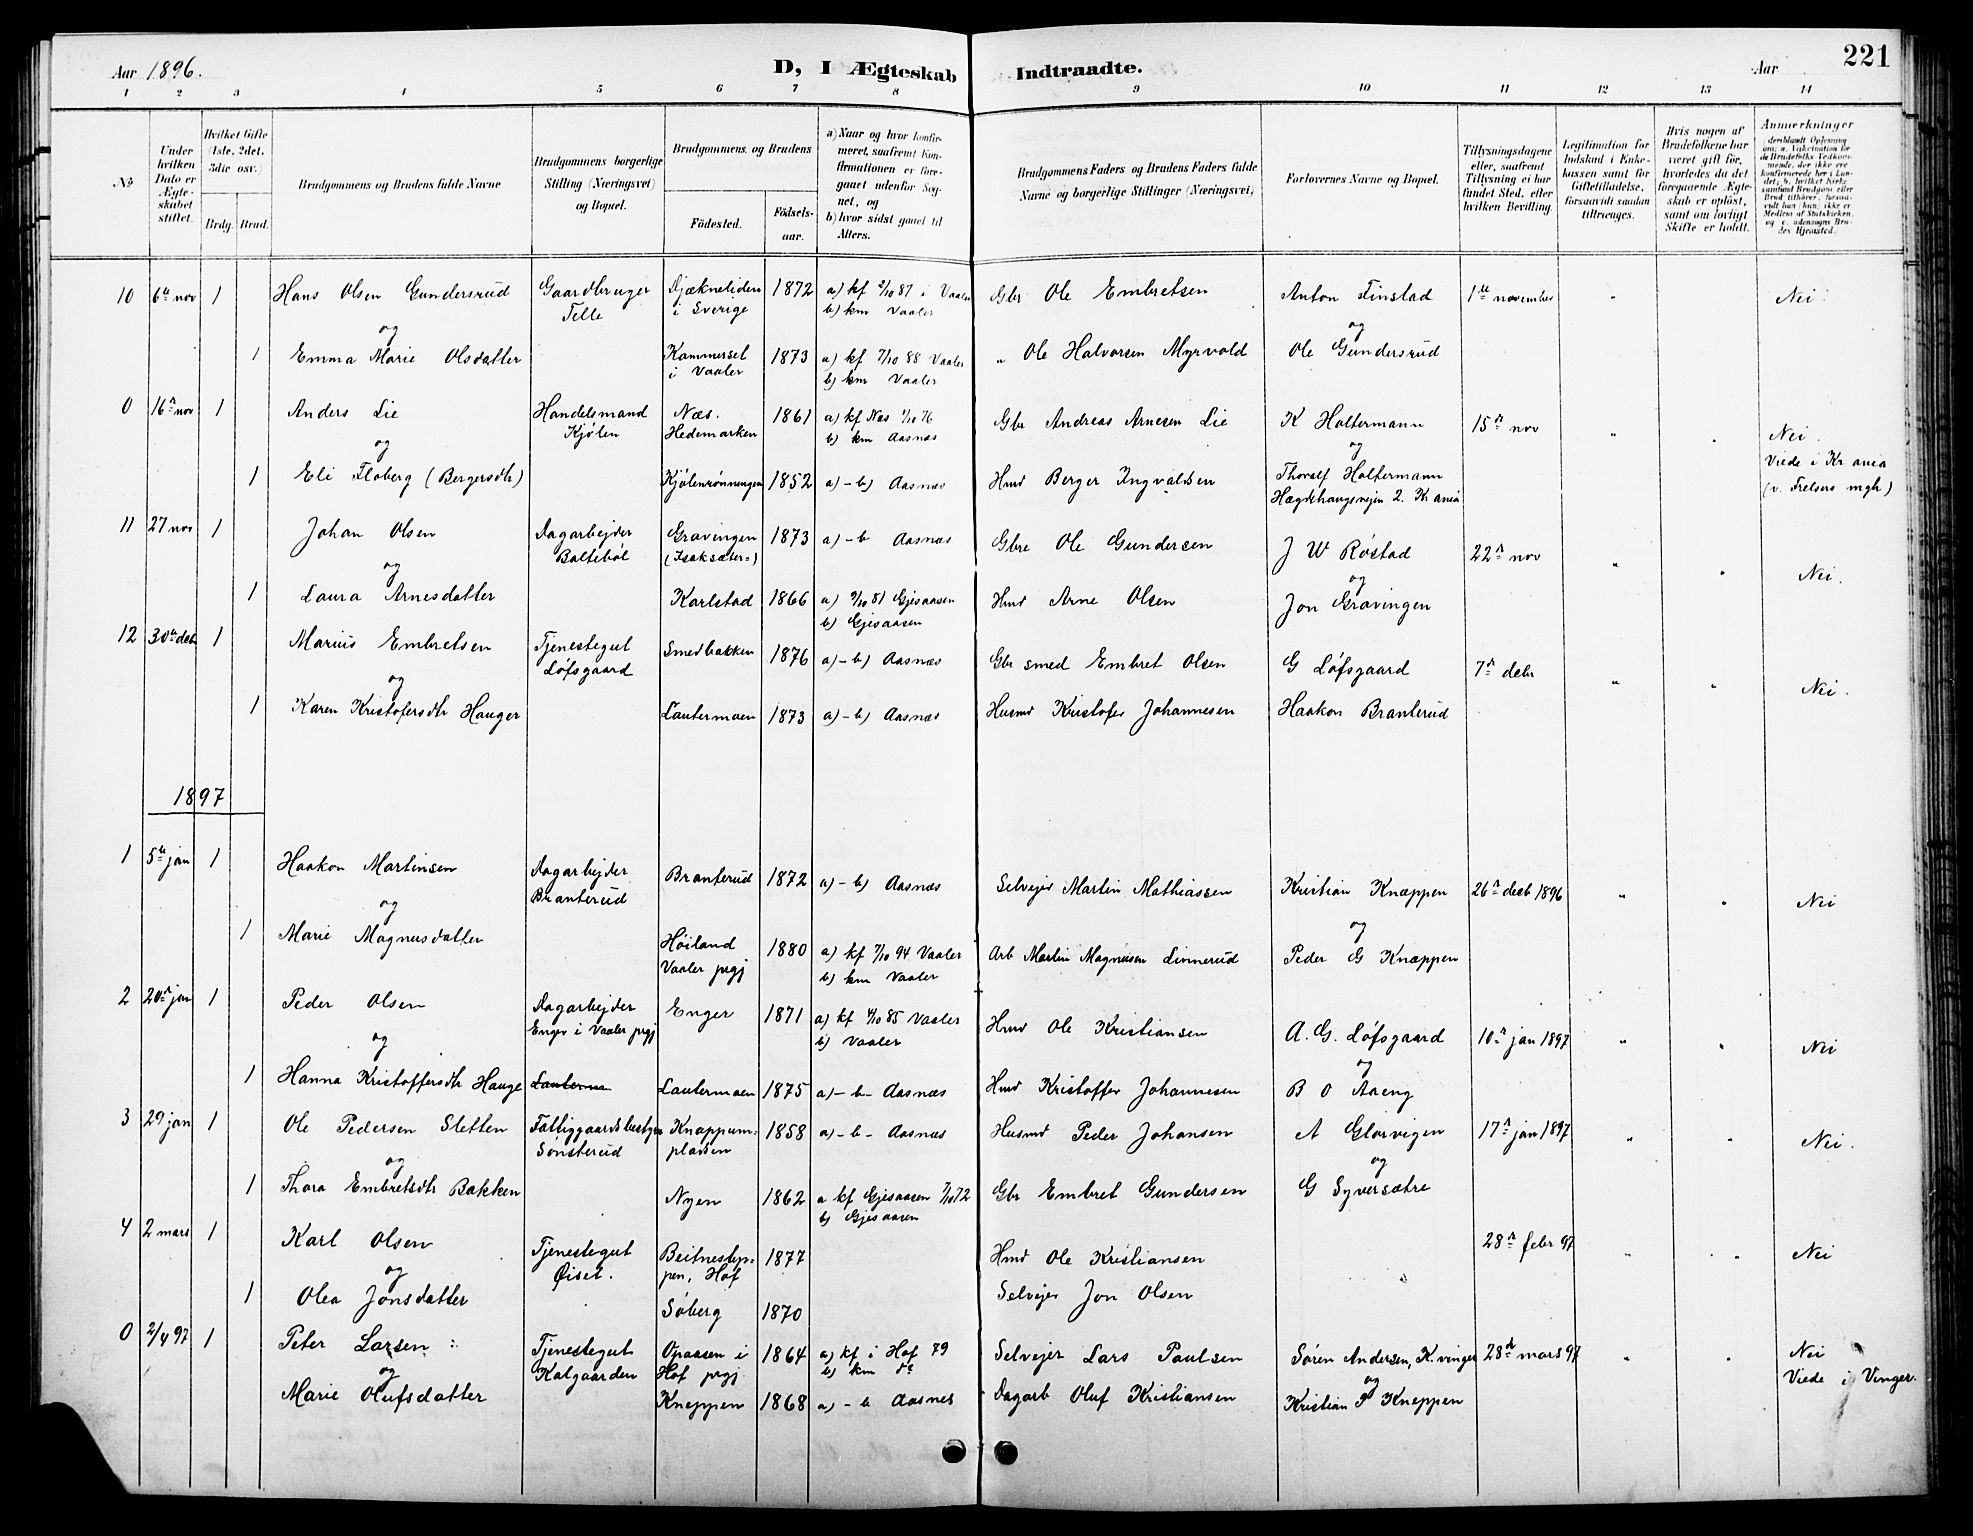 Aar 1896.
D, I Ægteskab Indtraadte.
Aar
221
1 2 3 4 5 6 7 8 9 10 11 12 13 14
No
Under hvilken Dato er Ægteskabet stiftet.
Hvilket Gifte (1ste, 2det, 3die osv.)
Brdg. Brud.
Brudgommens og Brudens fulde Navne
Brudgommens borgerlige Stilling (Næringsvei) og Bopæl.
Brudgommens og Brudens
Fødested.
Fødselsaar.
a) Naar og hvor konfirmeret, saafremt Konfirmationen er foregaaet udenfor Sognet, og
b) hvor sidst gaaet til Alters.
Brudgommens Faders og Brudens Faders fulde Navne og borgerlige Stillinger (Næringsvei)
Forlovernes Navne og Bopæl.
Tillysningsdagene eller, saafremt Tillysning ei har fundet Sted, efter hvilken Bevilling.
Legitimation for Indskud i Enkekassen samt for Giftetilladelse, forsaavidt saadan tiltrænges.
Hvis nogen af Brudefolkene har været gift før, hvorledes da det foregaaende Ægteskab er opløst, samt om lovligt Skifte er holdt.
Anmerkninger
10 6te nov 1 Hans Olsen Gundersrud Gaardbruger Djækneliden 1872 a) kf 2/10 87 i Vaaler Gbr Ole Embretsen Anton Finstad 1te november " Nei
Telle i Sverige b) km Vaaler
og og
1 Emma Marie Olsdatter Kammerset 1873 a) kf 7/10 88 Vaaler " Ole Halvorsen Myrvold Ole Gundersrud
i Vaaler b) km Vaaler
0 16n nov 1 Anders Lie Handelsmand Næs. 1861 a) kf Næs 1/10 76 Gbr Andreas Arnesen Lie K Holtermann 15n nov " Nei.
Kjølen Hedemarken b) km Aasnæs
og og
1 Eli Floberg (Bergersdtr) Kjølenrønningen 1852 a) - b) Aasnæs Hmd Berger Ingvaldsen Thoralf Holtermann Viede i Kr ania
Hægdehaugsvejen 2. Kr ania (v. Frelsers mgh)
11 27 nov 1 Johan Olsen Dagarbejder Gravingen 1873 a) - b Aasnæs Gbre Ole Gundersen J W Røstad 22n nov " Nei.
Baltebøl (Isaksæter)
og og
1 Laura Arnesdatter Karlstad 1866 a) 9/10 81 Gjesaasen Hmd Arne Olsen Jon Gravingen
b) Gjesaasen
12 30te debr 1 Marius Embretsen Tjenestegut Smedbakken 1876 a) - b) Aasnæs Gbr smed Embret Olsen G Løfsgaard 7n debr " Nei.
Løfsgaard
og
1 Karen Kristofersdtr Hauger Lautermoen 1873 a) - b) Aasnæs Husmd Kristofer Johannesen Haakon Branterud
1897
1 5te jan 1 Haakon Martinsen Dagarbejder Branterud 1872 a) - b) Aasnæs Selvejer Martin Mathiassen Kristian Knæppen 26n decb 1896 " Nei
Branterud
og og
1 Marie Magnusdatter Høiland 1880 a) kf 7/10 94 Vaaler Arb Martin Magnusen Linnerud Peder G Knæppen
Vaaler prgj b) km Vaaler
2 20n jan 1 Peder Olsen Dagarbejder Enger 1871 a) kf 4/10 85 Vaaler Hmd Ole Kristiansen A. G. Løfsgaard 10n jan 1897 " Nei
Enger i Vaaler prgj b) Vaaler
og og
1 Hanna Kristoffersdtr Hauge Lautermoen 1875 a) - b - Aasnæs Hmd Kristoffer Johannesen B O Aaeng
3 29 jan 1 Ole Pedersen Sletten Fattiggaardsbestyrer Knappum- 1858 a) - b - Aasnæs Husmd Peder Johansen A Glorvigen 17n jan 1897 " Nei.
Sønsterud plassen
og og
1 Thora Embretsdtr Bakken Nyen 1862 a kf Gjesaasen 7/10 72 Gbr Embret Gundersen G Syversætre
b) Gjesaasen
4 2 mars 1 Karl Olsen Tjenestegut Beitnestep- 1877 Hmd Ole Kristiansen 28n febr 97 " Nei
Øiset. pen, Hof
og
1 Olea Jonsdatter Søberg 1870 Selvejer Jon Olsen
0 2/4 97 1 Peter Larsen Tjenestegut Opaasen i 1864 a) kf i Hof 79 Selvejer Lars Paulsen Søren Andersen, K.vinger 28n mars 97 " Nei
Kalgaarden Hof prgj b) km do Viede i Vinger.
og og
Marie Olufsdatter Kneppen 1868 a) - b Aasnes Dagarb Oluf Kristiansen Kristian P Kneppen